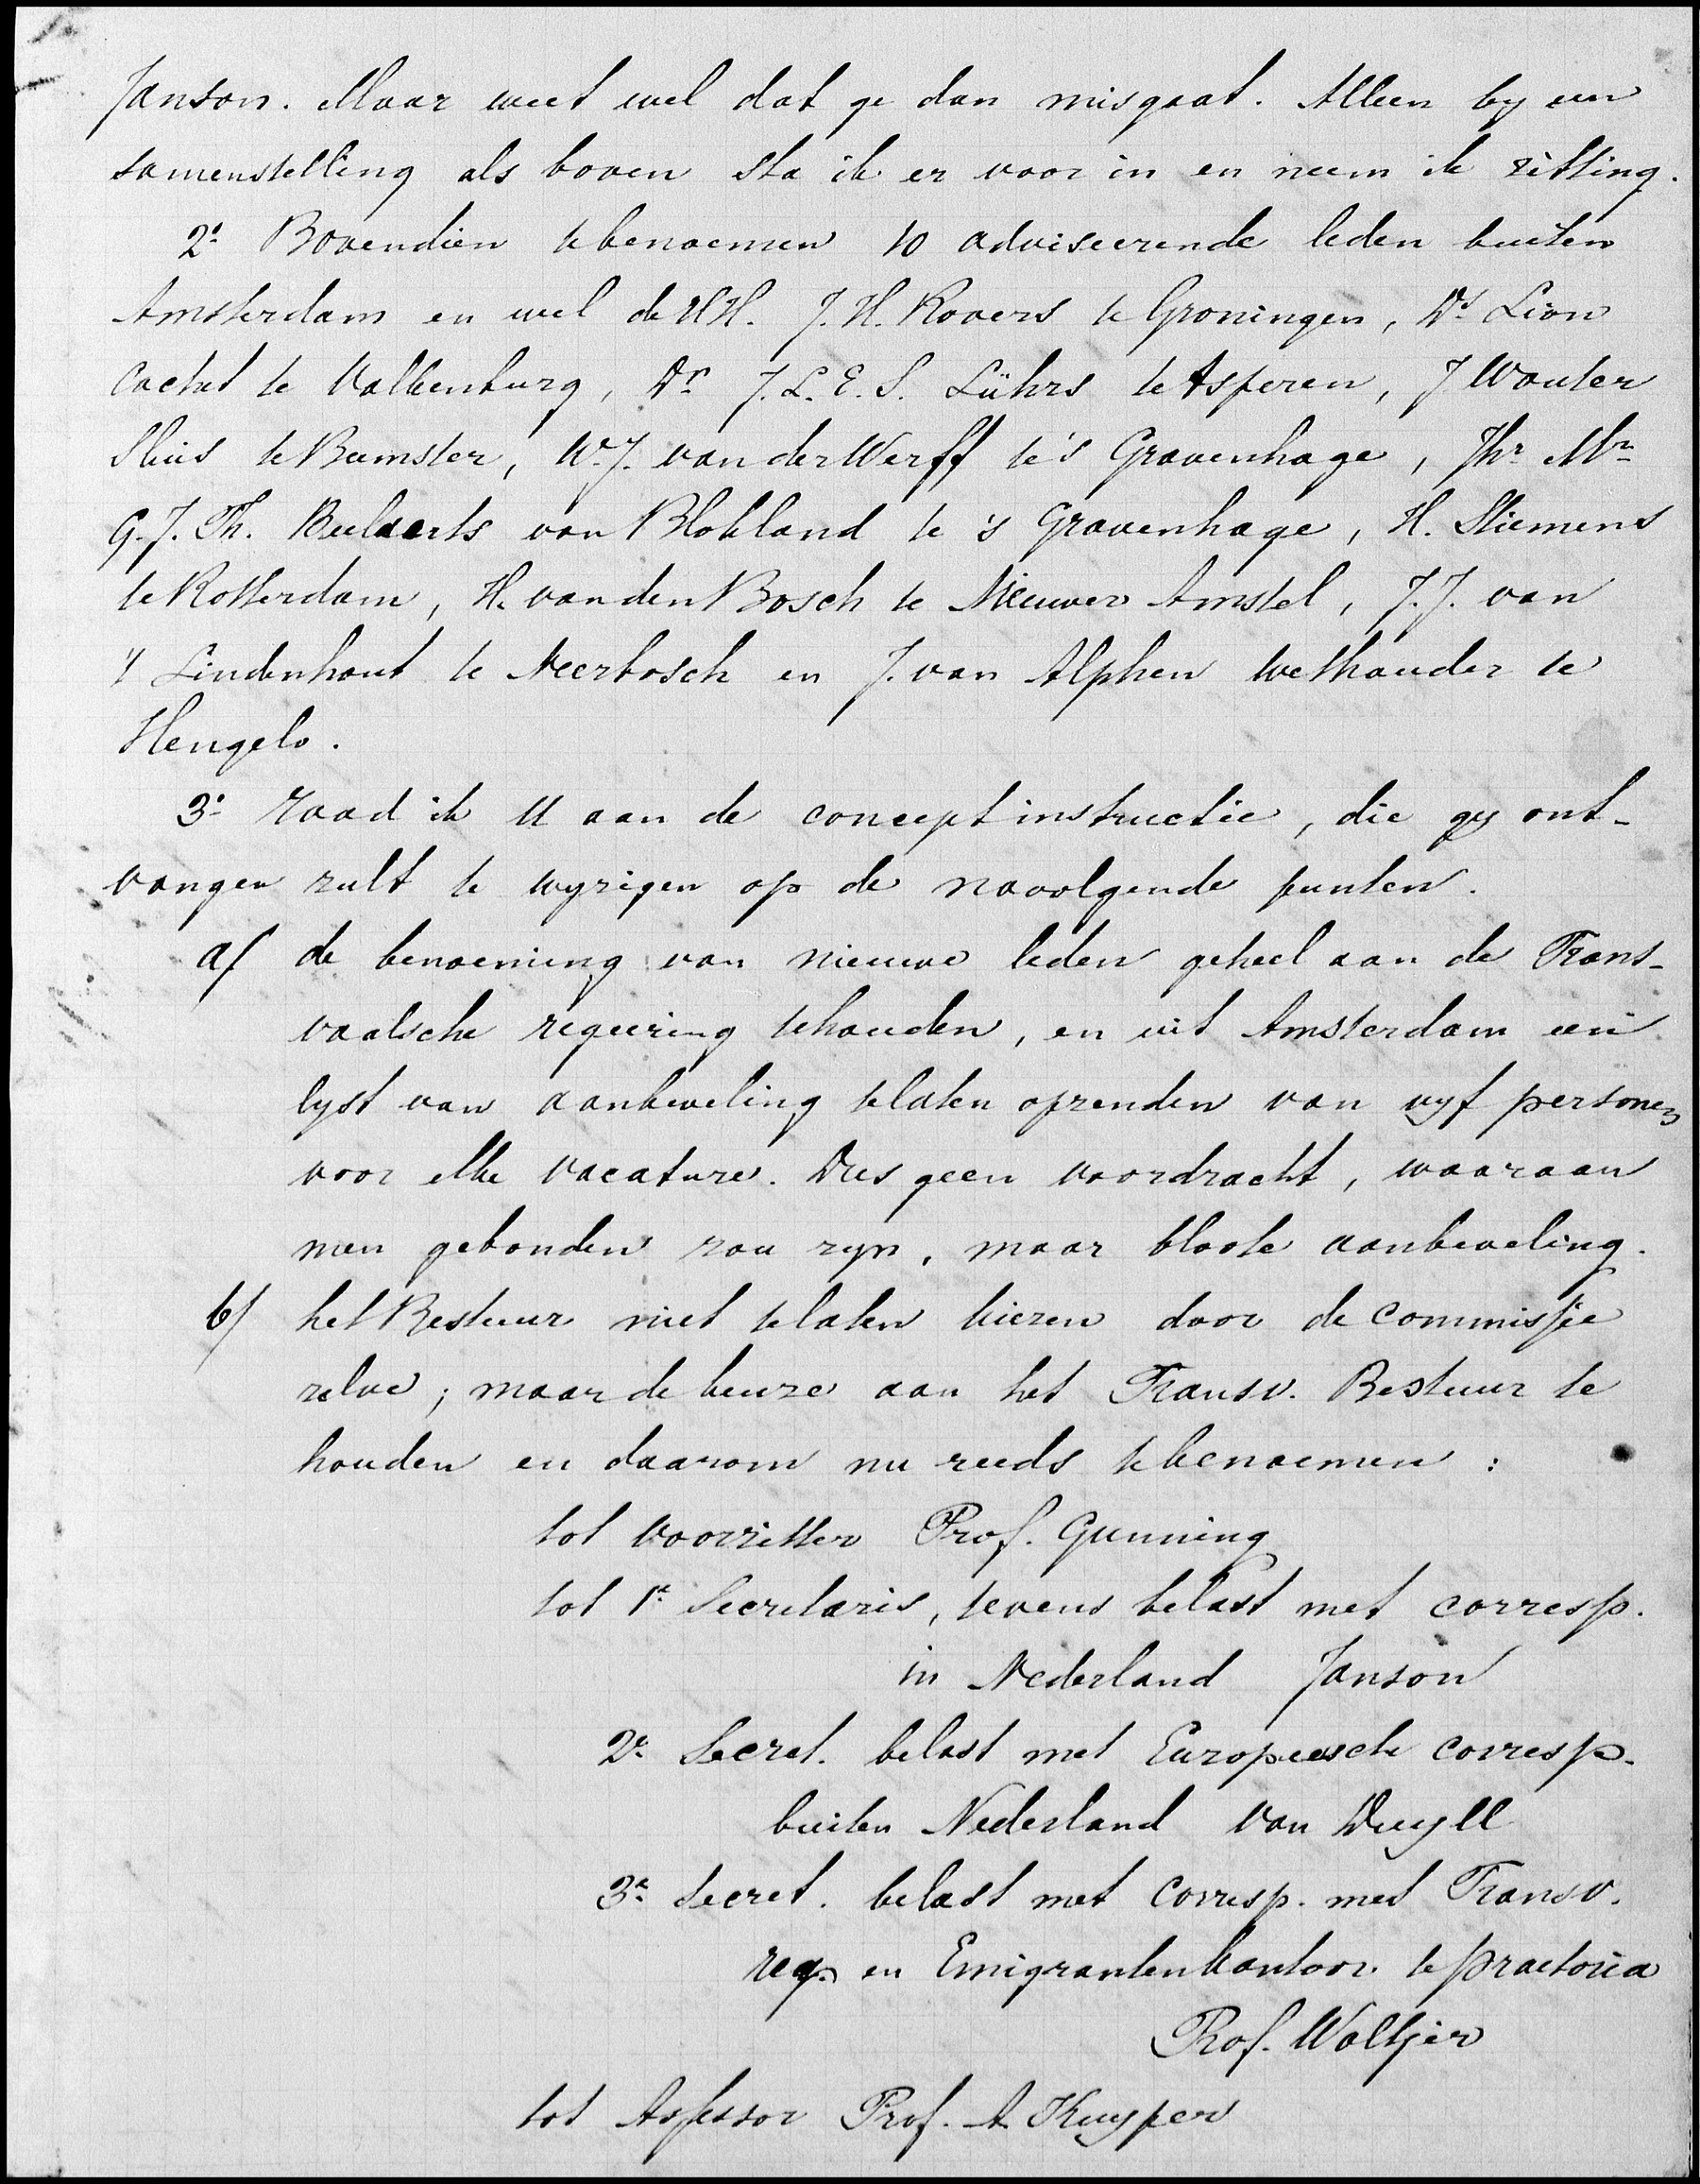 Janson. Maar weet wel dat ge dan misgaat. Alleen by een
samenstelling als boven sta ik er voor in en neem ik zitting.
2º Bovendien te benoemen 10 adviseerende leden buiten
Amsterdam en wel de HH. J. H. Rovers te Groningen, Ds Lion
Cachet te Valkenburg, Dr J. L. E. S. Lührs te Asperen, J Wouter
Sluis te Beemster, W. J. van der Werff te 's Gravenhage, Jhr Mr
G. J. Th. Beelaerts van Blokland te 's Gravenhage, H. Stiemens
te Rotterdam, H. van den Bosch te Nieuwer Amstel, J. J. van
't Lindenhout te Neerbosch en J. van Alphen wethouder te
Hengelo.
3º raad ik U aan de conceptinstructie, die gy ont-
vangen zult te wyzigen op de navolgende punten.
a/ de benoeming van nieuwe leden geheel aan de Trans-
vaalsche regeering te houden, en uit Amsterdam een
lyst van aanbeveling te laten opzenden van vyf personen
voor elke vacature. Dus geen voordracht, waaraan
men gebonden zou zyn, maar bloote aanbeveling.
b/ het Bestuur niet te laten kiezen door de Commissie
zelve; maar de keuze aan het Transv. Bestuur te
houden en daarom nu reeds te benoemen:
tot Voorzitter Prof. Gunning
tot 1e Secretaris, tevens belast met corresp.
in Nederland Janson
2e Secret. belast met Europeesche corresp.
buiten Nederland van Duyll
3e Secret. belast met Corresp. met Transv.
reg. en Emigrantenkantoor te Praetoria
Prof. Woltjer
tot Assessor Prof. A. Kuyper